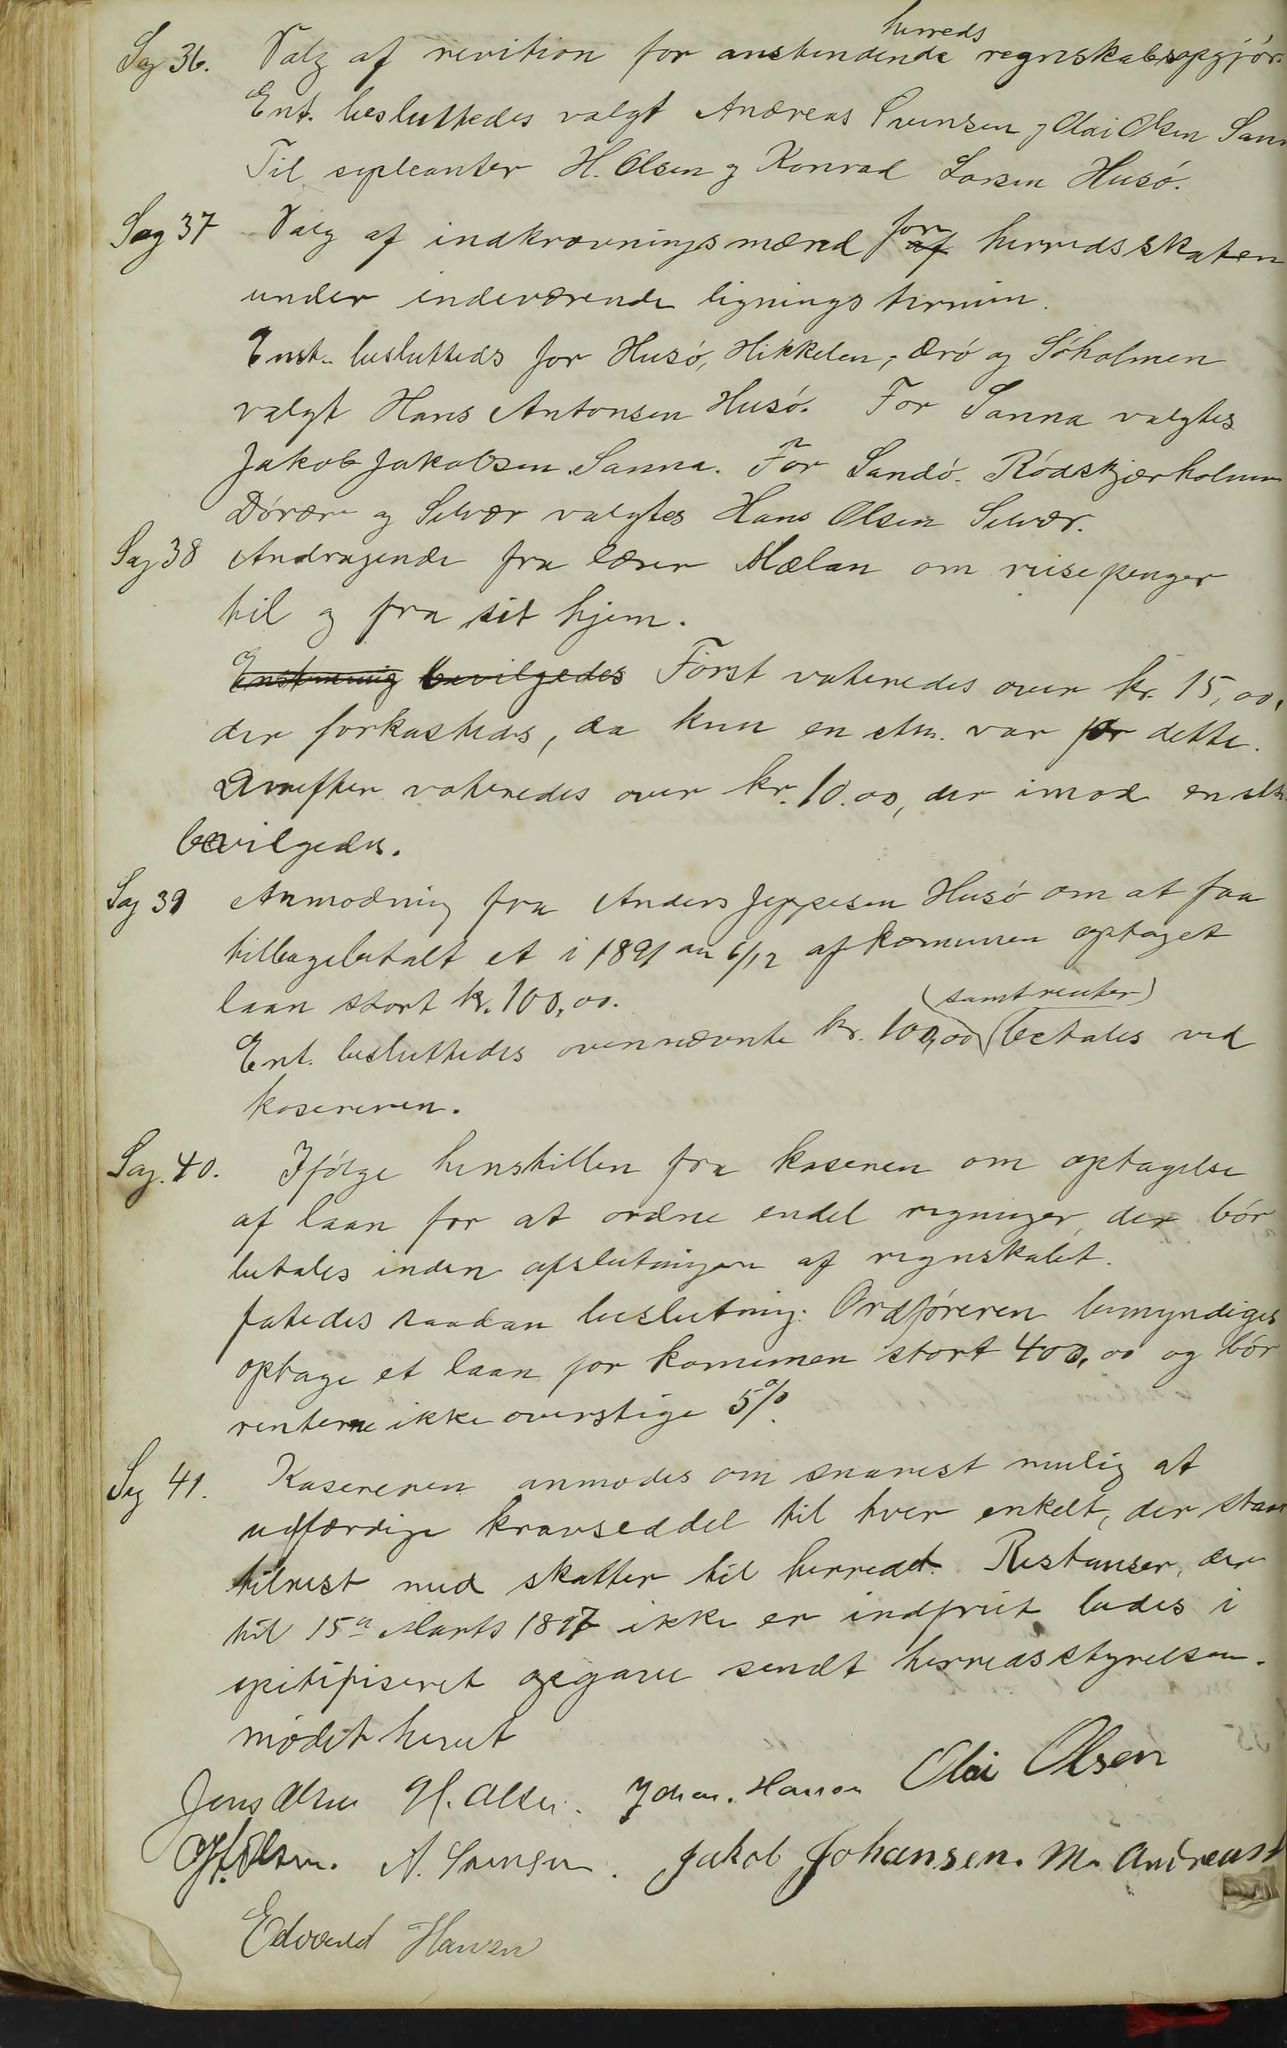 herreds
Sag 36. Valg af revition for anstundende regnskabsopgjör.
Ent. besluttedes valgt Andreas Svensen og Olai Olsen Sann
Til supleanter H. Olsen og Konrad Larsen Husö.
Sag 37 Valg af indkrævningsmænd for af herredsskaten
under indeværende lignings termin.
Enst. beslutteds for Husö, Hikkelen, Ærö og Söholmen
valgt Hans Antonsen Husö. For Sanna valgtes
Jakob Jakobsen Sanna. For Sandö. Rödskjærholmen
Dörær og Selvær valgtes Hans Olsen Selvær.
Sag 38 Andragende fra lærer Mælan om reisepenger
til og fra sit hjem.
Enstemmig bevilgedes Först voteredes over kr. 15,00,
der forkasteds, da kun en stm. var for dette.
Derefter voteredes over kr. 10.00, der imod en stm.
bevilgedes.
Sag 39 Anmodning fra Anders Jeppesen Husö om at faa
tilbagebetalt et i 1891 an 6/12 af komunen optaget
laan stort kr. 100,00.
(samt renter)
Ent. besluttedes ovennævnte kr. 100,00 betales ved
kasereren.
Sag. 40. Ifölge henstillen fra kaseren om optagelse
af laan for at ordne endel regninger, der bör
betales inden afslutningen af regnskabet.
fatedes saadan beslutning: Ordföreren bemyndiges
optage et laan for komunen stort 400,00 og bör
renterne ikke overstige 5%.
Sag 41. Kasereren anmodes om snarest mulig at
udfærdige kravseddel til hver enkelt, der staar
tilrest med skatter til herredet. Restanser, der
til 15de Marts 1897 ikke er indfriet lades i
spitifiseret opgave sendt herredsstyrelsen.
mödet hævet
Jens Olsen H. Olsen. Johan. Hanson Olai Olsen
H. Olsen. A. Svensen. Jakob Johansen. M. Andreas
Edvard Hansen